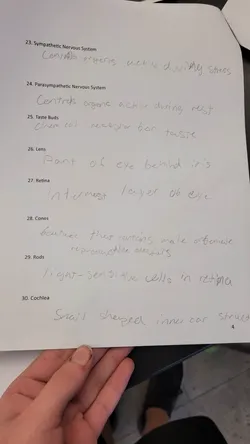 23. Sympathetic Nervous System
Controls organs active during stress
24. Parasympathetic Nervous System
Controls organs active during rest
25. Taste Buds
Chemical receptor for taste
26. Lens
Part of eye behind iris
27. Retina
innermost layer of eye
28. Cones
29. Rods
light-sensitive cells in retina
30. Cochlea
Snail shaped inner ear struct
4